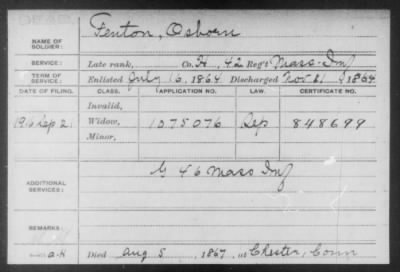 DEAD
NAME OF SOLDIER: Fenton, Osborn
SERVICE: Late rank, Co. H, 42 Reg't Mass. Inf
TERM OF SERVICE: Enlisted July 16, 1864 Discharged Nov. 1864
DATE OF FILING. CLASS. APPLICATION NO. LAW. CERTIFICATE NO.
Invalid,
1916 Sep 2 Widow, 1075076 Rep 848699
Minor,
ADDITIONAL SERVICES: G 46 Mass Inf
REMARKS:
Died Aug 5, 1867, at Chester, Conn